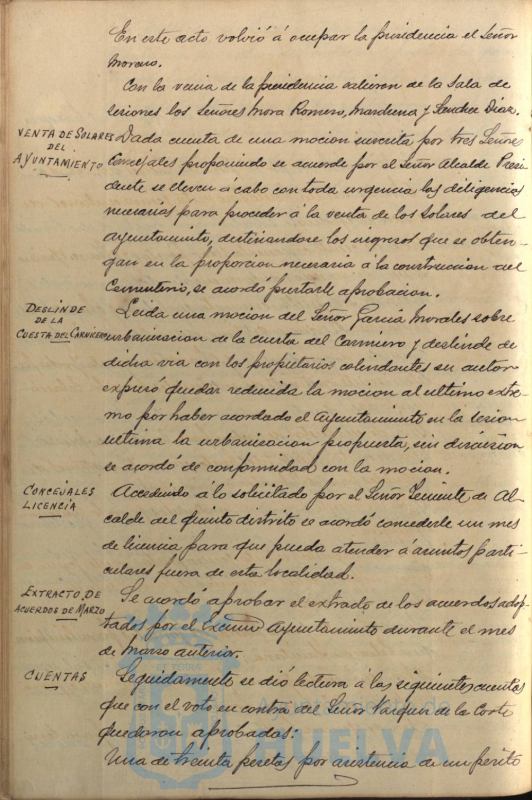 En este acto volvió á ocupar la presidencia el Señor
Moreno.
Con la venia de la presidencia salieron de la Sala de
sesiones los Señores Mora Romero, Marchena y Sanchez Diaz.
VENTA DE SOLARES
DEL
AYUNTAMIENTO
Dada cuenta de una mocion suscrita por tres Señores
Concejales proponiendo se acuerde por el Señor Alcalde Presi-
dente se lleven á cabo con toda urgencia las diligencias
necesarias para proceder á la venta de los Solares del
Ayuntamiento, destinandose los ingresos que se obten-
gan en la proporcion necesaria á la construccion del
Cementerio, se acordó prestarle aprobacion.
DESLINDE
DE LA
CUESTA DEL CARNICERO
Leida una mocion del Señor Garcia Morales sobre
urbanizacion de la cuesta del Carnicero y deslinde de
dicha via con los propietarios colindantes su autor
expresó quedar reducida la mocion al ultimo extre-
mo por haber acordado el Ayuntamiento en la sesion
ultima la urbanizacion propuesta, sin discusion
se acordó de conformidad con la mocion.
CONCEJALES
LICENCIA
Accediendo á lo solicitado por el Señor Teniente de Al-
calde del quinto distrito se acordó concederle un mes
de licencia para que pueda atender á asuntos parti-
culares fuera de esta localidad.
EXTRACTO DE
ACUERDOS DE MARZO
Se acordó aprobar el extracto de los acuerdos adop-
tados por el Excmo Ayuntamiento durante el mes
de Marzo anterior.
CUENTAS
Seguidamente se dió lectura á las siguientes cuentas
que con el voto en contra del Señor Vazquez de la Corte
quedaron aprobadas:
Una de treinta pesetas por asistencia de un perito
HUELVA